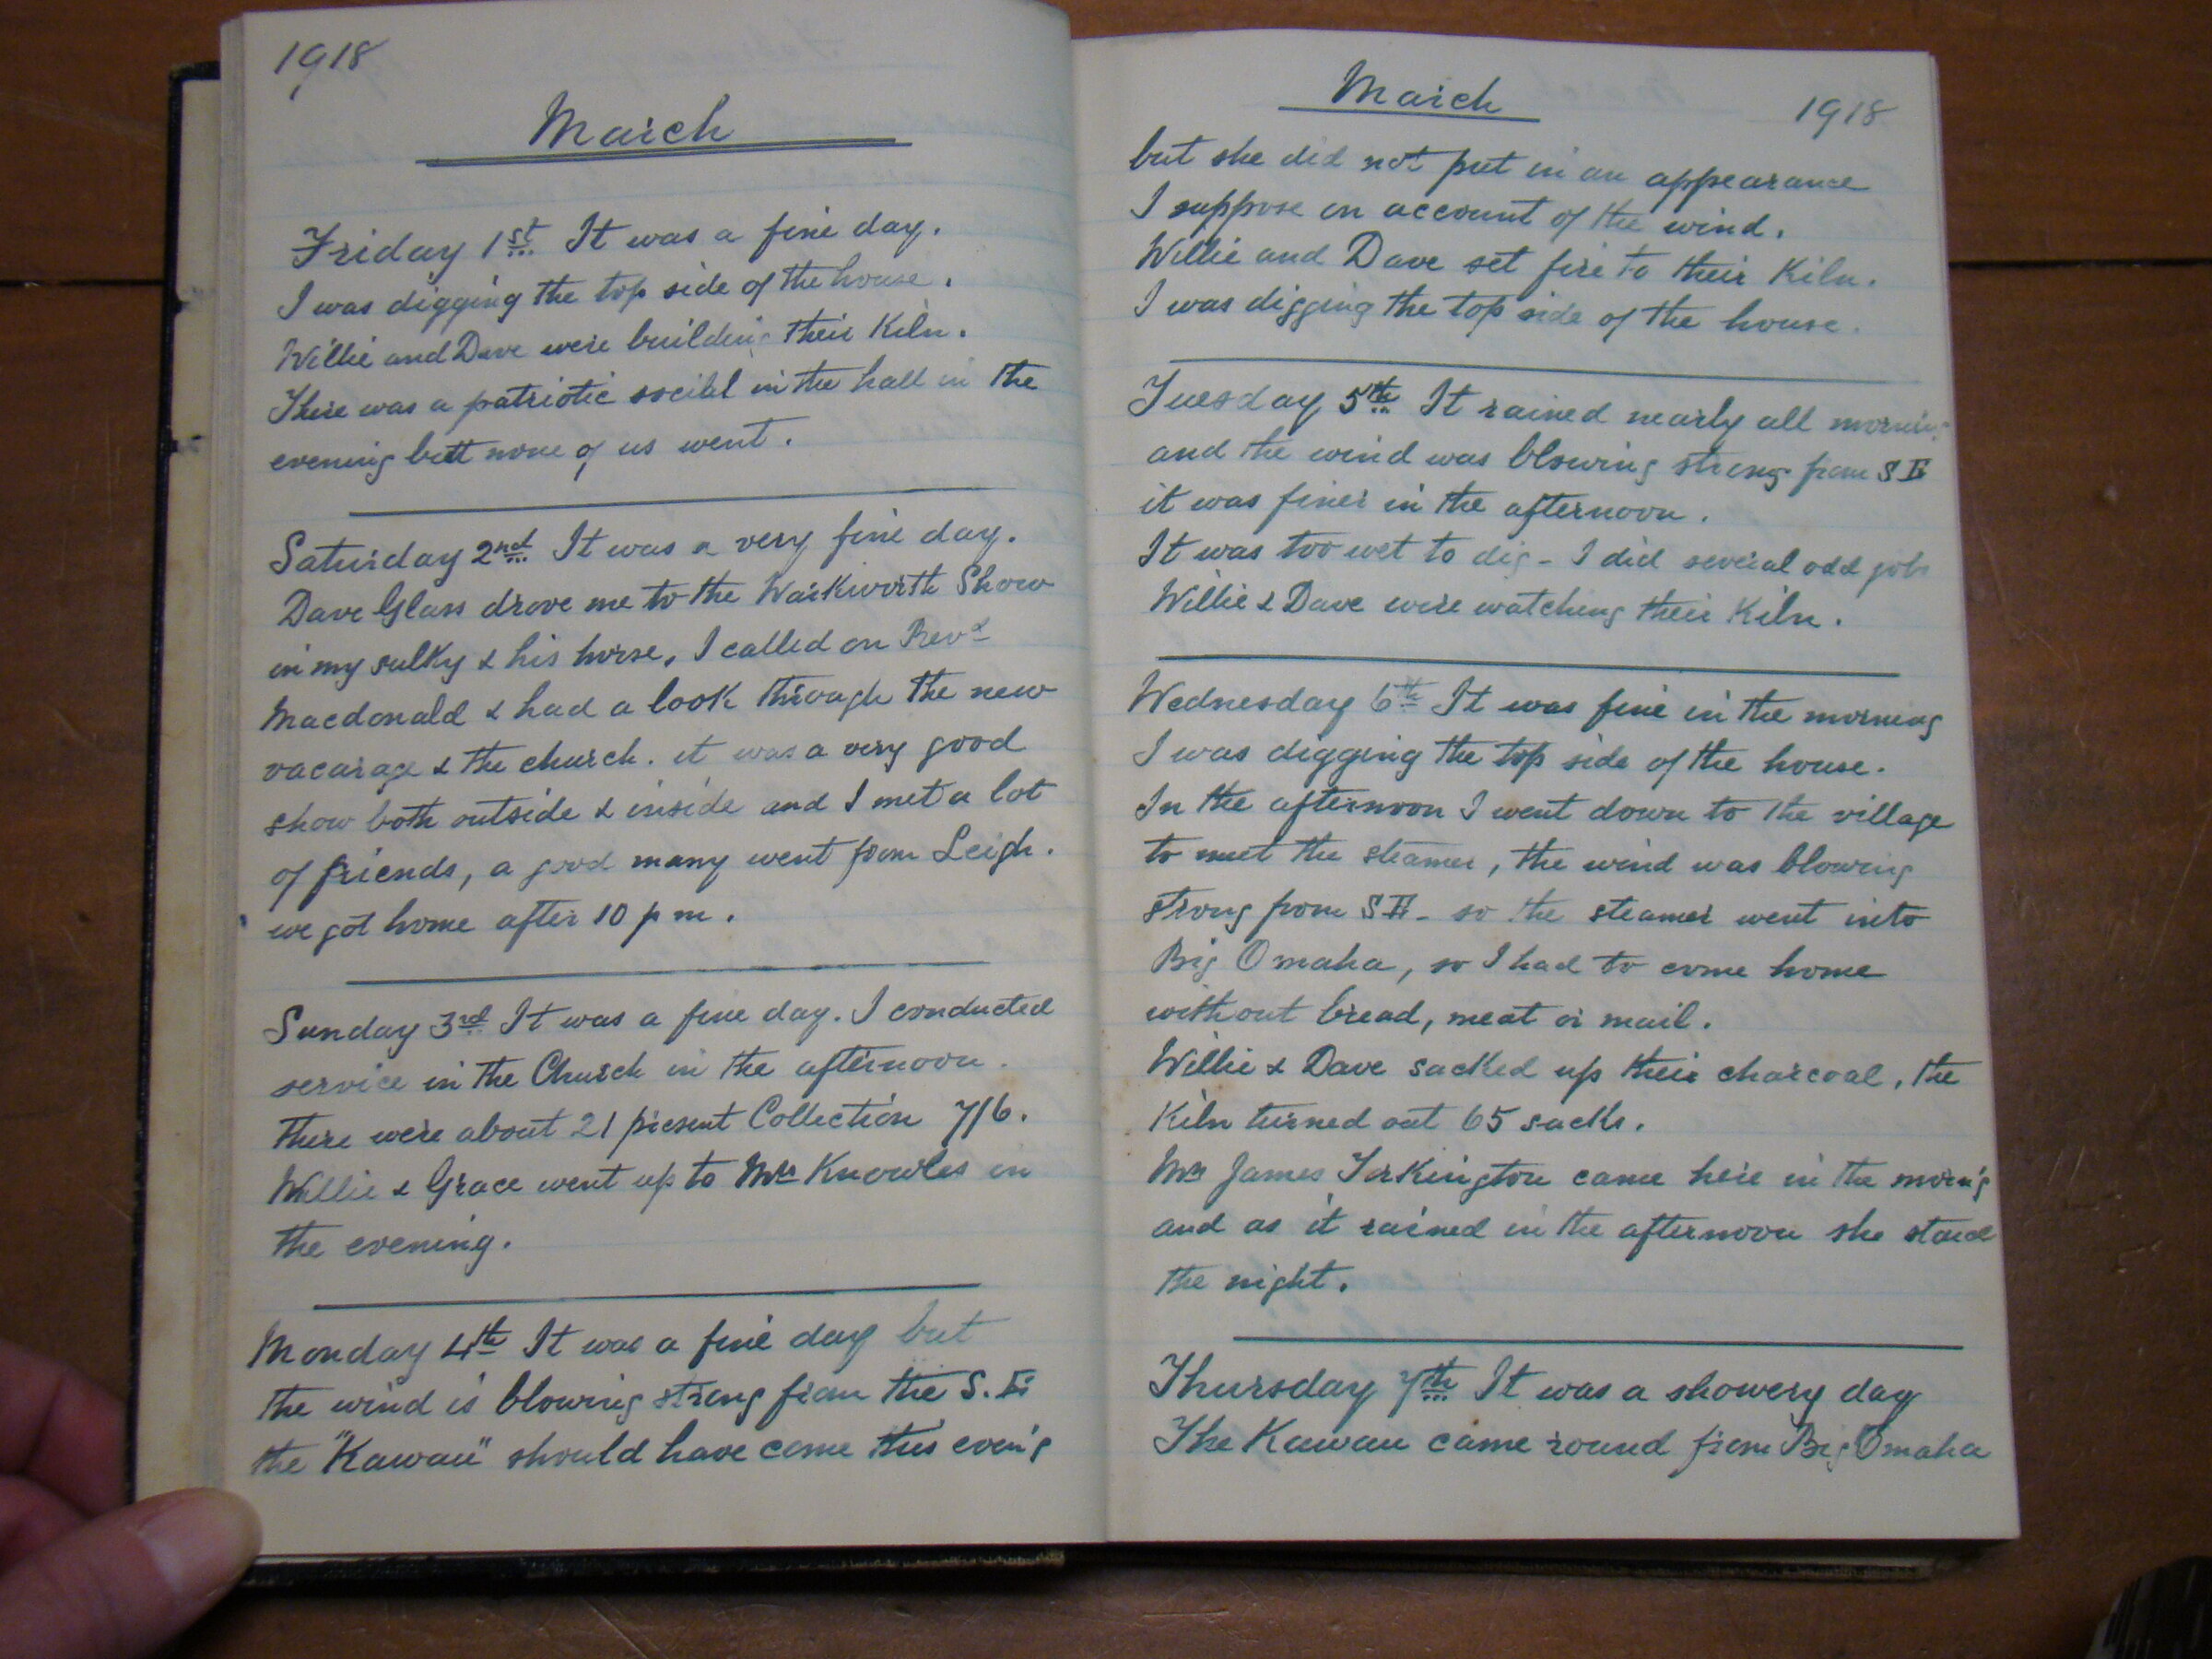 1918
March
Friday 1st It was a fine day.
I was digging the top side of the house.
Willie and Dave were building their Kiln.
There was a patriotic social in the hall in the
evening but none of us went.
Saturday 2nd It was a very fine day.
Dave Glass drove me to the Warkworth Show
in my sulky & his horse, I called on Revd
Macdonald & had a look through the new
vacarage & the church. it was a very good
show both outside & inside and I met a lot
of friends, a good many went from Leigh.
we got home after 10 p m.
Sunday 3rd It was a fine day. I conducted
service in the Church in the afternoon.
There were about 21 present Collection 7/6.
Willie & Grace went up to Mrs Knowles in
the evening.
Monday 4th It was a fine day but
the wind is blowing strong from the S.E
the "Kawau" should have come this even'g
March
1918
but she did not put in an appearance
I suppose on account of the wind.
Willie and Dave set fire to their Kiln.
I was digging the top side of the house.
Tuesday 5th It rained nearly all morning
and the wind was blowing strong from S E
it was finer in the afternoon.
It was too wet to dig - I did several odd jobs
Willie & Dave were watching their Kiln.
Wednesday 6th It was fine in the morning
I was digging the top side of the house.
In the afternoon I went down to the village
to meet the steamer, the wind was blowing
strong from S E - so the steamer went into
Big Omaha, so I had to come home
without bread, meat or mail.
Willie & Dave sacked up their charcoal, the
Kiln turned out 65 sacks.
Mrs James Torkington came here in the morn'g
and as it rained in the afternoon she staid
the night.
Thursday 7th It was a showery day
The Kawau came round from Big Omaha